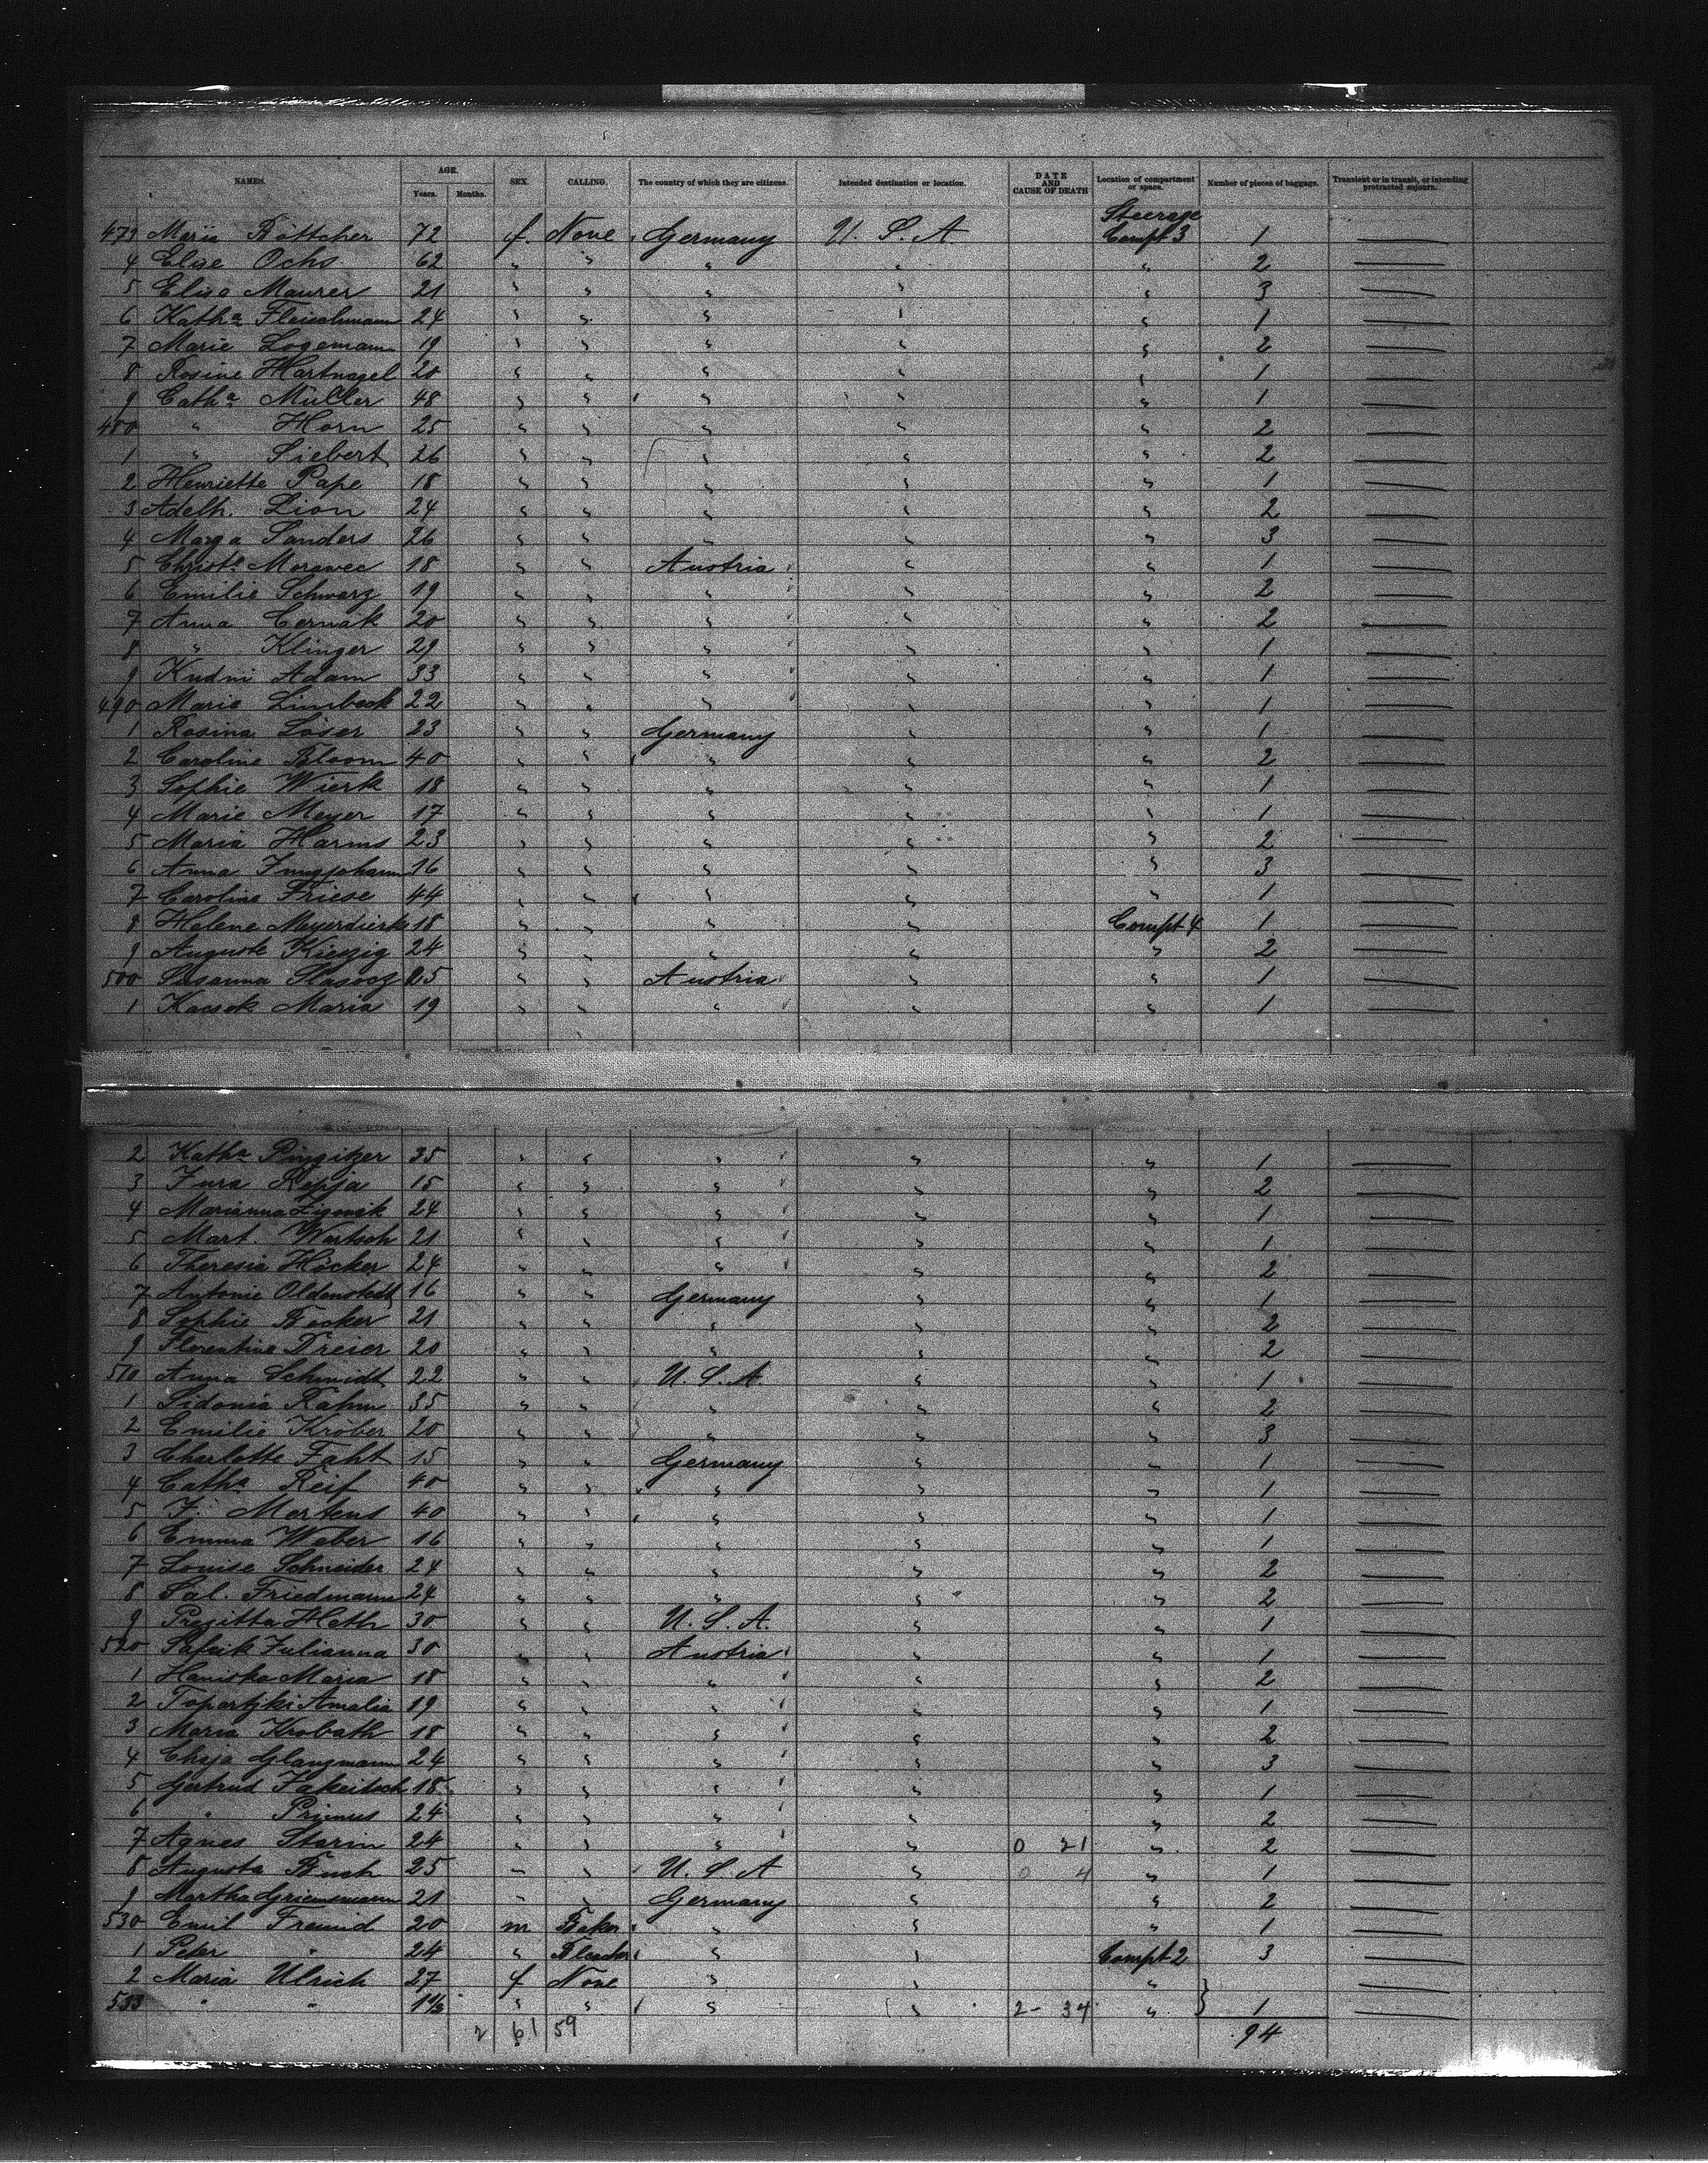 NAMES. AGE. SEX. CALLING. The country of which they are citizens. Intended destination or location. DATE AND CAUSE OF DEATH Location of compartment or space. Number of pieces of baggage. Transient or in transit, or intending protracted sojourn.
Years. Months.
Steerage
473 Maria Böttcher 72 f. None Germany U. S. A. Compt 3 1 —
4 Elise Ochs 62 " " " " " 2 —
5 Elise Maurer 21 " " " " " 3 —
6 Katha Fleischmann 24 " " " " " 1 —
7 Marie Logemann 19 " " " " " 2 —
8 Rosine Hartnagel 20 " " " " " 1 —
9 Catha Müller 48 " " " " " 1 —
480 " Horn 25 " " " " " 2 —
1 " Siebert 26 " " " " " 2 —
2 Henriette Pape 18 " " " " " 1 —
3 Adelh. Lion 24 " " " " " 2 —
4 Marga Sanders 26 " " " " " 3 —
5 Christe Moravec 18 " " Austria " " 1 —
6 Emilie Schwarz 19 " " " " " 2 —
7 Anna Cermak 20 " " " " " 2 —
8 " Klinger 29 " " " " " 1 —
9 Kudni Adam 33 " " " " " 1 —
490 Marie Limbeck 22 " " " " " 1 —
1 Rosina Löser 23 " " Germany " " 1 —
2 Caroline Bloom 40 " " " " " 2 —
3 Sophie Wierk 18 " " " " " 1 —
4 Marie Meyer 17 " " " " " 1 —
5 Maria Harms 23 " " " " " 2 —
6 Anna Jungjohann 16 " " " " " 3 —
7 Caroline Friese 44 " " " " " 1 —
8 Helene Meyerdierks 18 " " " " Compt 4 1 —
9 Auguste Kiezig 24 " " " " " 2 —
500 Susanna 25 " " Austria " " 1 —
1 Kacsok Maria 19 " " " " " 1 —
2 Katha Pingitzer 35 " " " " " 1 —
3 Jura Repja 15 " " " " " 2 —
4 Marianna 24 " " " " " 1 —
5 Mart. 21 " " " " " 1 —
6 Theresia Höcker 24 " " " " " 2 —
7 Antonie Oldenstedt 16 " " Germany " " 1 —
8 Sophie Becker 21 " " " " " 2 —
9 Florentine Dreier 20 " " " " " 2 —
510 Anna Schmidt 22 " " U. S. A. " " 1 —
1 Sidonia Rahm 35 " " " " " 2 —
2 Emilie Kröber 20 " " " " " 3 —
3 Charlotte Faht 15 " " Germany " " 1 —
4 Catha Reif 40 " " " " " 1 —
5 J. Mertens 40 " " " " " 1 —
6 Emma Weber 16 " " " " " 1 —
7 Louise Schneider 24 " " " " " 2 —
8 Sal. Friedmann 24 " " " " " 2 —
9 30 " " U. S. A. " " 1 —
520 Julianna 30 " " Austria " " 1 —
1 Maria 18 " " " " " 2 —
2 Amalia 19 " " " " " 1 —
3 Maria Krobath 18 " " " " " 2 —
4 Chaja Glanzmann 24 " " " " " 3 —
5 Gertrud Jakeitsch 18 " " " " " 1 —
6 " Primus 24 " " " " " 2 —
7 Agnes Starin 24 " " " " 0 21 " 2 —
8 Augusta Buch 25 " " U. S. A " 0 4 " 1 —
9 Martha Griensmann 21 " " Germany " " 2 —
530 Emil Freund 20 m Baker " " " 1 —
1 Peter " 24 " " " Compt 2 3 —
2 Maria Ulrich 27 f None " " " —
533 " " 1 1/2 " " " " 2 - 34 " } 1 —
2 61 59 94